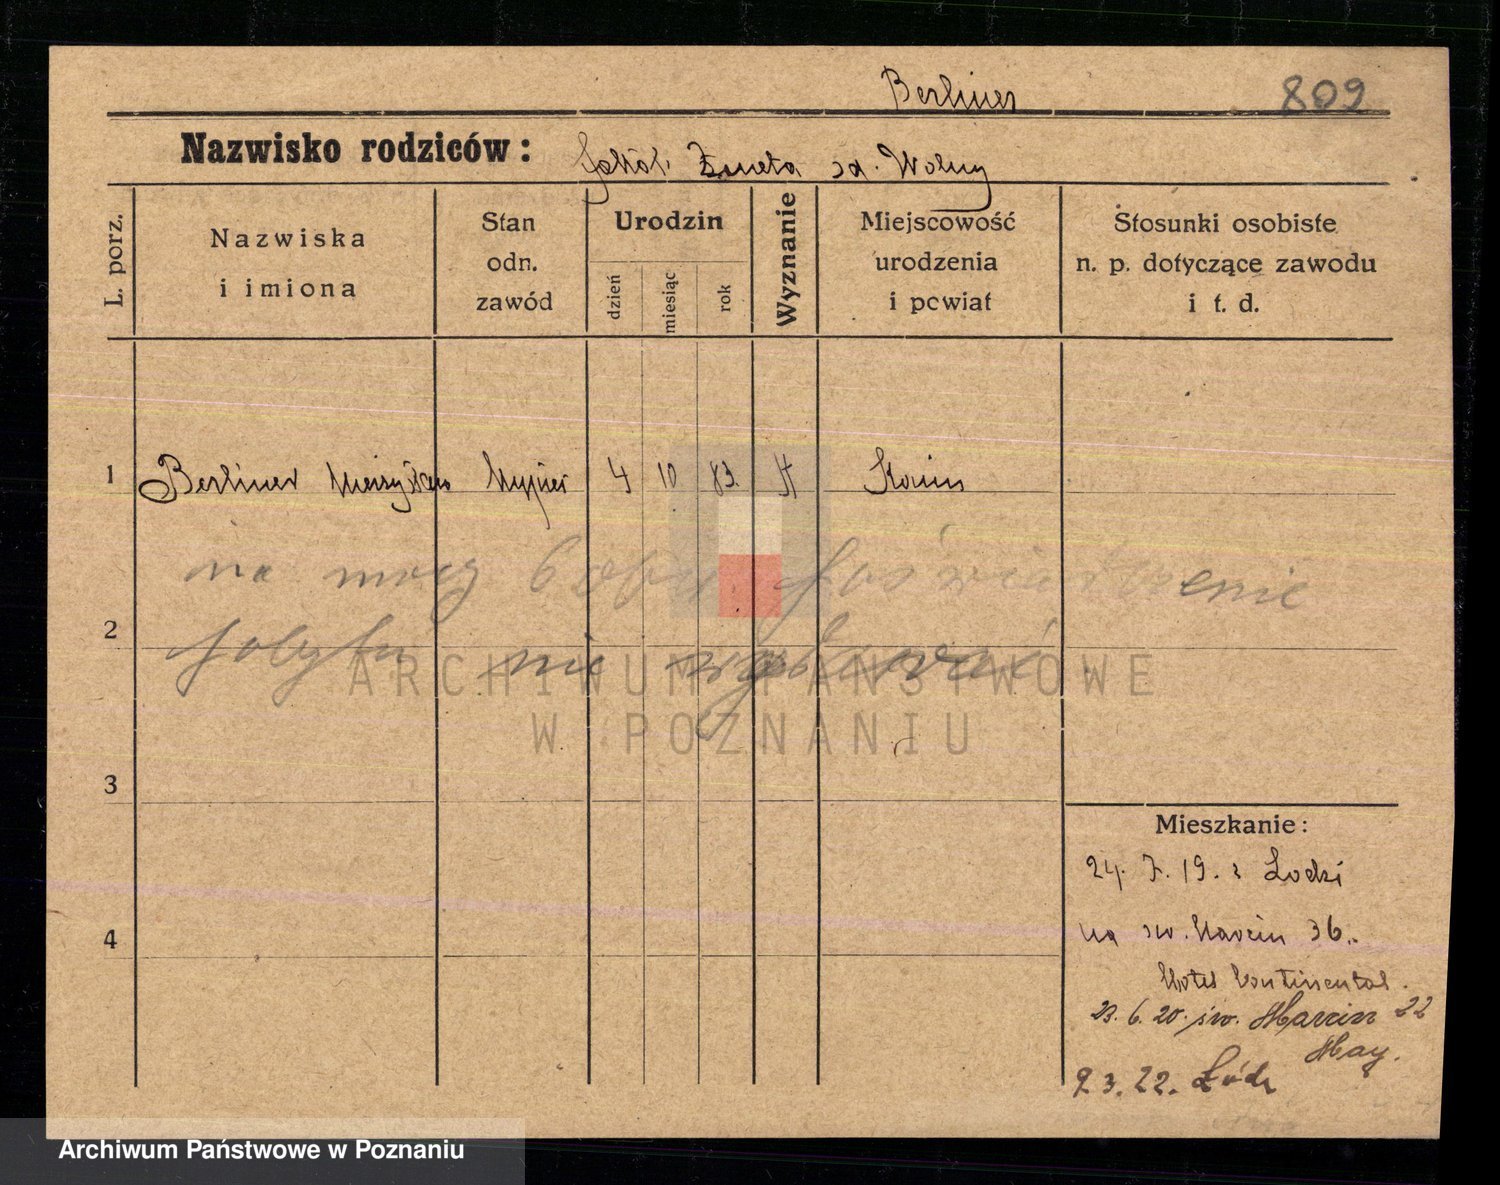 Berliner 809
Nazwisko rodziców: Jakób Żaneta
L. porz.
Nazwiska
i imiona
Stan
odn.
zawód
Urodzin
dzień
miesiąc
rok
Wyznanie
Miejscowość
urodzenia
i powiat
Stosunki osobiste
n. p. dotyczące zawodu
i t. d.
1 Berliner kupiec 4 10 83 Konin
na mocy poświadczenie
pobytu nie
2
3
4
Mieszkanie:
24. 7. 19. z Łodzi
na św. Marcin 36.
Hotel Kontinental.
23. 6. 20. św. Marcin 22
May.
9 3. 22. Łódź
ARCHIWUM PAŃSTWOWE
W POZNANIU
Archiwum Państwowe w Poznaniu